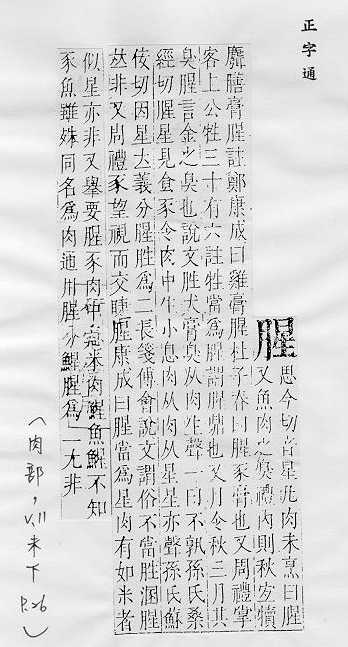 正字通
腥
思今切音星凡肉未烹曰腥
又魚肉之臭禮內則秋宜犢
麛膳膏腥註鄭康成曰雞膏腥杜子春曰腥豕膏也又周禮掌
客上公牲三十有六註牲當爲腥謂腥鼎也又月令秋三月其
臭腥言金之臭也說文胜犬膏臭从肉生聲一曰不孰孫氏桑
經切腥星見食豕令肉中生小息肉从肉从星星亦聲孫氏蘇
佞切因星義分腥胜爲二長箋傅會說文謂俗不當胜溷腥
𠀤非又周禮豕望視而交睫腥康成曰腥當爲星肉有如米者
似星亦非又舉要腥豕肉中米肉鯹魚鯹不知
豕魚雖殊同名爲肉通用腥分鯹腥爲二尤非
(肉部, V.11 未下 P.26)